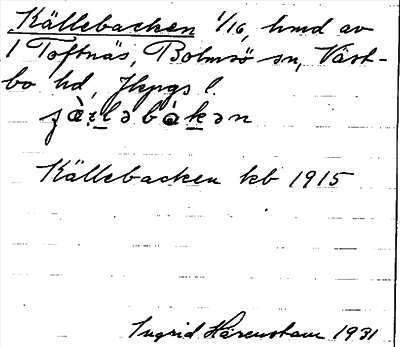 Källebacken 1/16, hmd av
1 Toftnäs, Bolmsö sn, Väst-
bo hd, Jkpgs l.
Källebacken kb 1915
Ingrid Härenstam 1931